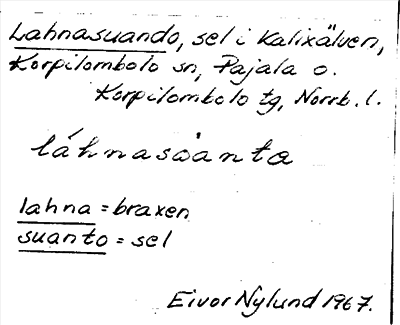 Lahnasuando, sel i Kalixälven,
Korpilombolo sn, Pajala o.
Korpilombolo tg, Norrb. l.
láhnasὰanta
lahna = braxen
suanto = sel
Eivor Nylund 1967.